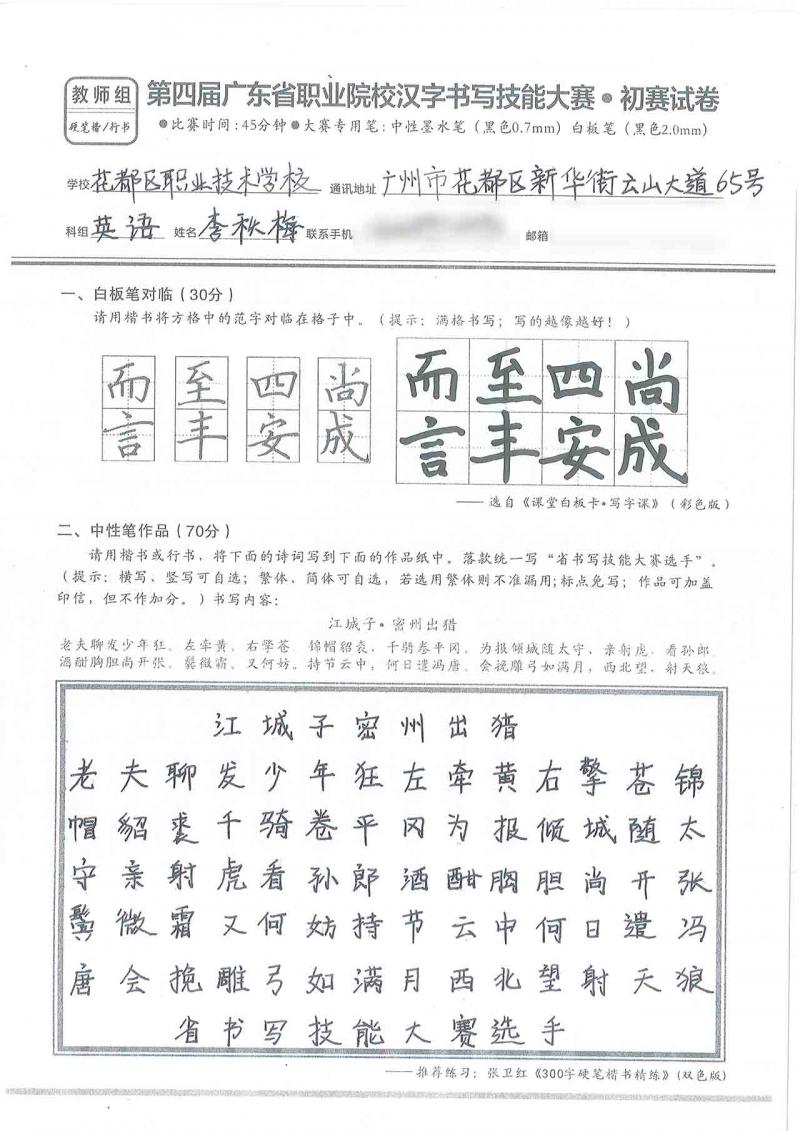 教师组
硬笔楷/行书
第四届广东省职业院校汉字书写技能大赛•初赛试卷
●比赛时间:45分钟●大赛专用笔:中性墨水笔(黑色0.7mm)白板笔(黑色2.0mm)
学校 花都区职业技术学校 通讯地址 广州市花都区新华街云山大道65号
科组 英语 姓名 李秋梅 联系手机 邮箱
一、白板笔对临(30分)
请用楷书将方格中的范字对临在格子中。(提示:满格书写;写的越像越好!)
而 至 四 尚 而 至 四 尚
言 丰 安 成 言 丰 安 成
—— 选自《课堂白板卡•写字课》(彩色版)
二、中性笔作品(70分)
请用楷书或行书,将下面的诗词写到下面的作品纸中。落款统一写“省书写技能大赛选手”。
(提示:横写、竖写可自选;繁体、简体可自选,若选用繁体则不准漏用;标点免写;作品可加盖
印信,但不作加分。)书写内容:
江城子•密州出猎
老夫聊发少年狂。左牵黄。右擎苍。锦帽貂裘。千骑卷平冈。为报倾城随太守、亲射虎、看孙郎
酒酣胸胆尚开张。鬓微霜。又何妨。持节云中,何日遣冯唐。会挽雕弓如满月,西北望、射天狼。
江城子密州出猎
老夫聊发少年狂左牵黄右擎苍锦
帽貂裘千骑卷平冈为报倾城随太
守亲射虎看孙郎酒酣胸胆尚开张
鬓微霜又何妨持节云中何日遣冯
唐会挽雕弓如满月西北望射天狼
省书写技能大赛选手
—— 推荐练习:张卫红《300字硬笔楷书精练》(双色版)